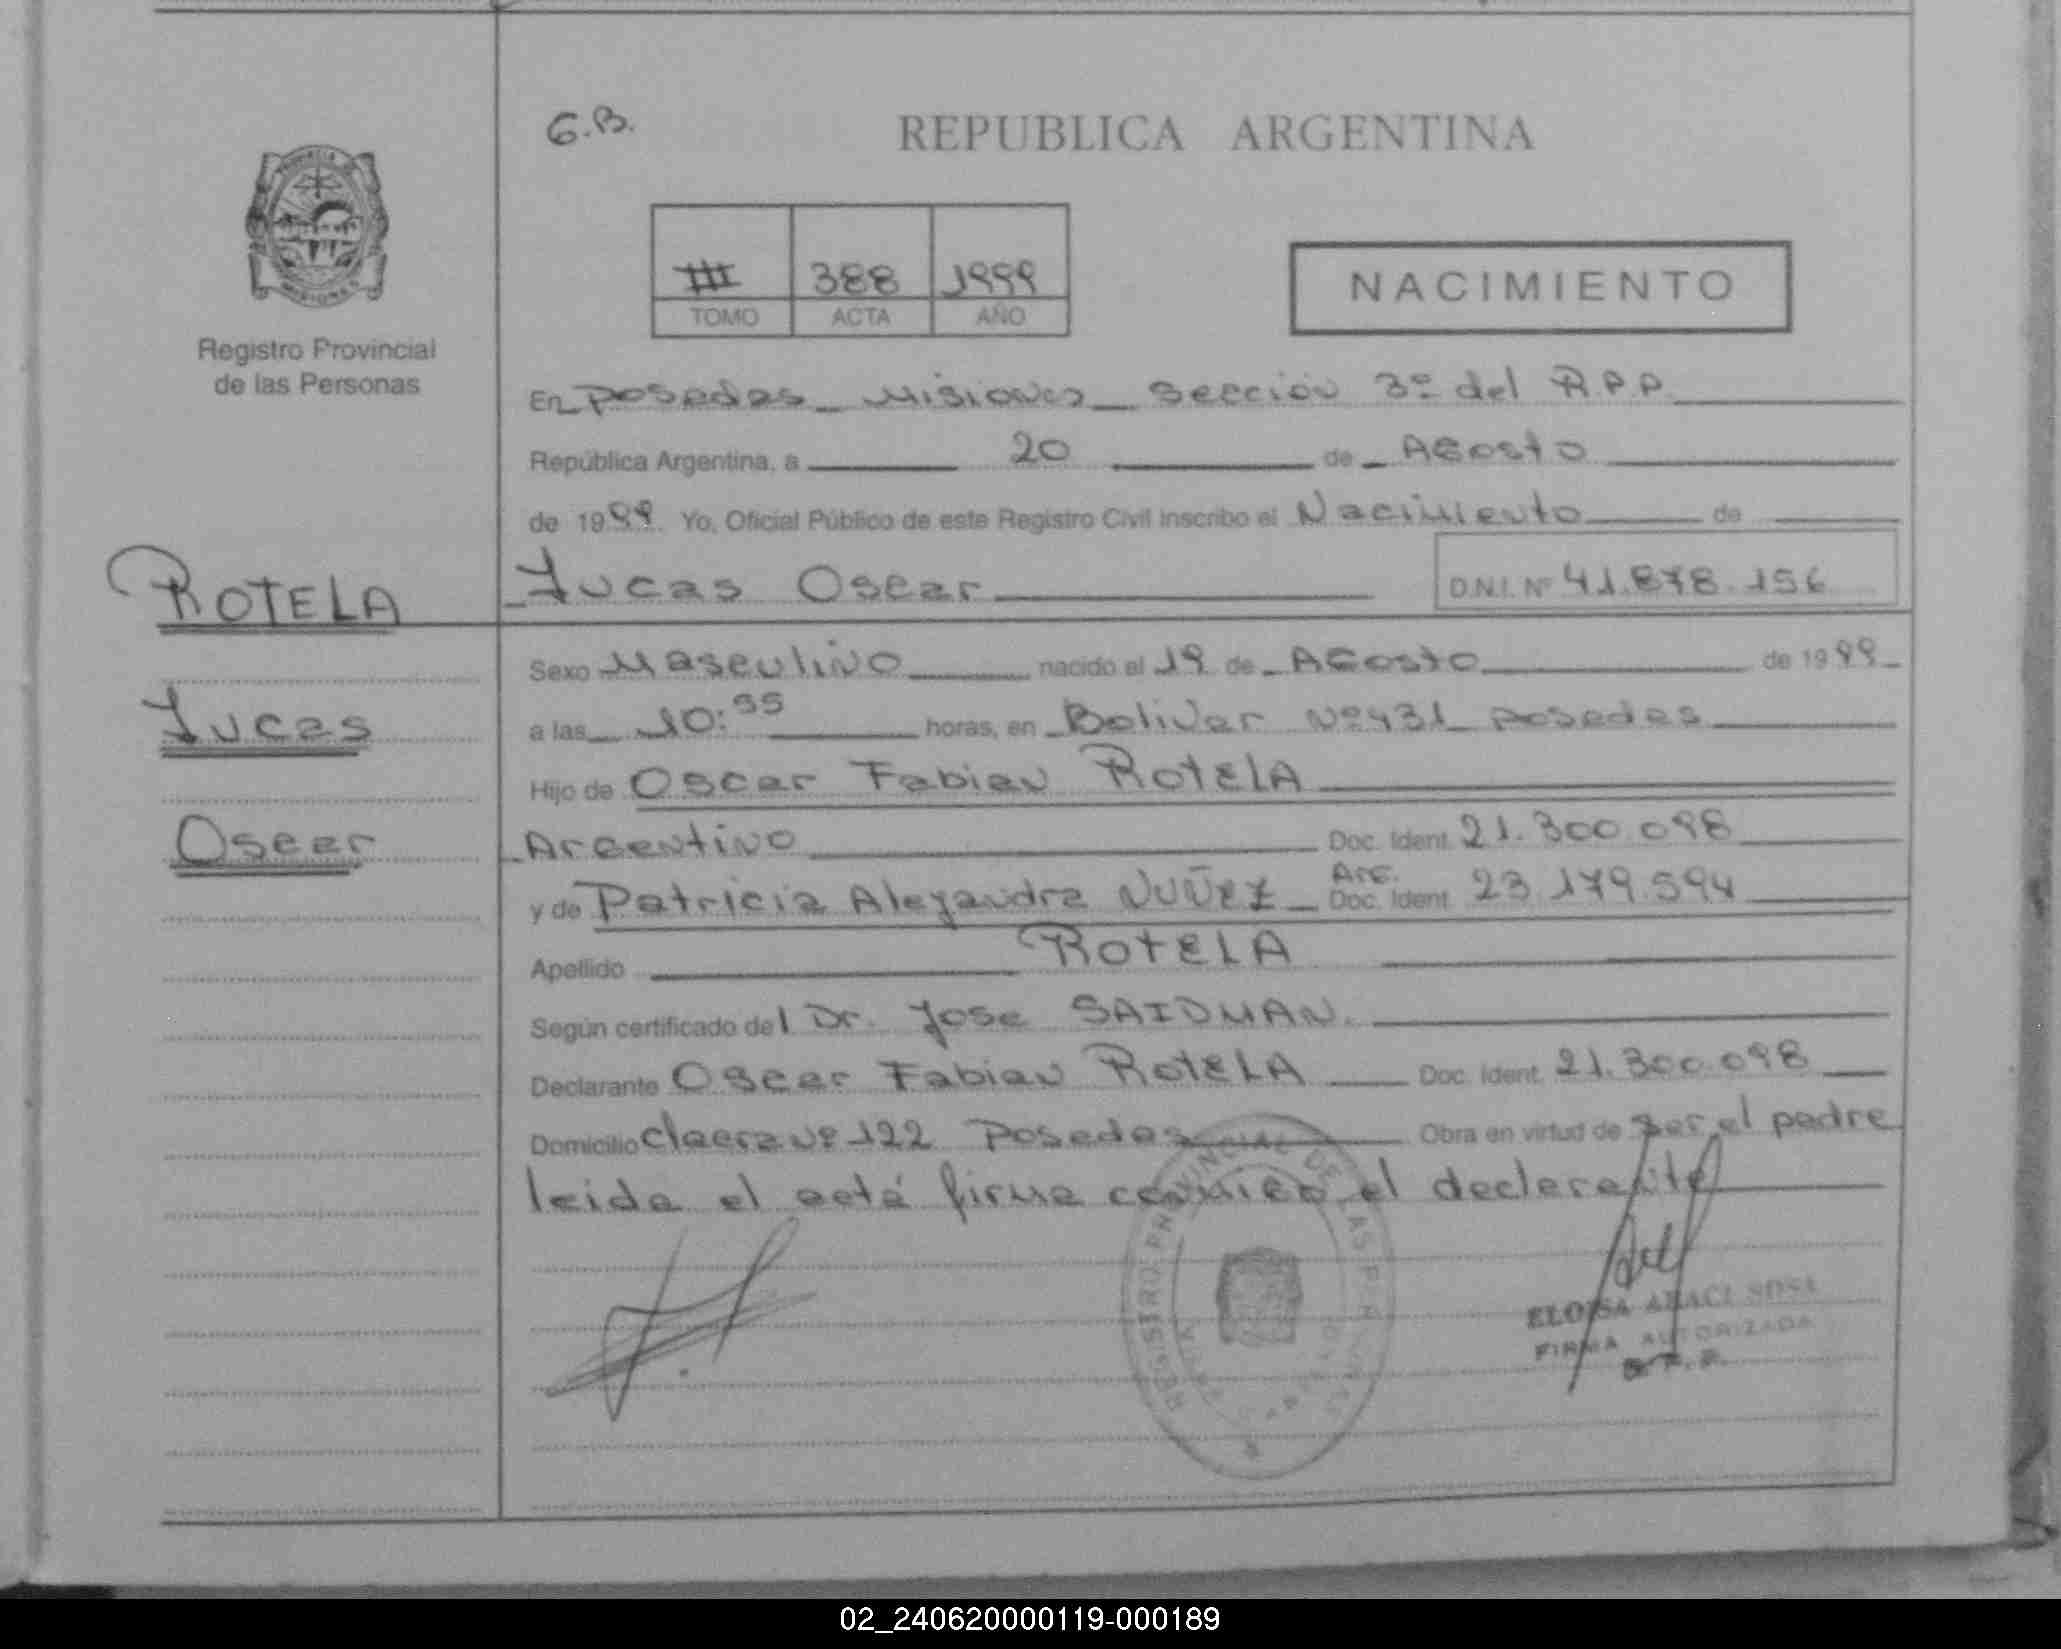 G.B.
REPUBLICA ARGENTINA
III 388 1999
TOMO ACTA AÑO
NACIMIENTO
PROVINCIA
MISIONES
Registro Provincial
de las Personas
En Posadas - Misiones - Sección 3º del R.P.P.
República Argentina, a 20 de Agosto
de 1999. Yo, Oficial Público de este Registro Civil inscribo el Nacimiento de
ROTELA
Lucas Oscar D.N.I. Nº 41.878.156
Sexo Masculino nacido el 19 de Agosto de 1999
Lucas
a las 10:55 horas, en Bolivar Nº 431 Posadas
Hijo de Oscar Fabian Rotela
Oscar
Argentino Doc. Ident. 21.300.098
Arg.
y de Patricia Alejandra NUÑEZ Doc. Ident. 23.179.594
Apellido ROTELA
Según certificado del Dr. Jose SAIDMAN.
Declarante Oscar Fabian Rotela Doc. Ident. 21.300.098
Domicilio Nº 122 Posadas Obra en virtud de ser el padre
leida el acta firma conmigo el declarante
REGISTRO PROVINCIAL DE LAS PERSONAS
ELOISA ARACI SOSA
FIRMA AUTORIZADA
R.P.P.
02_240620000119-000189